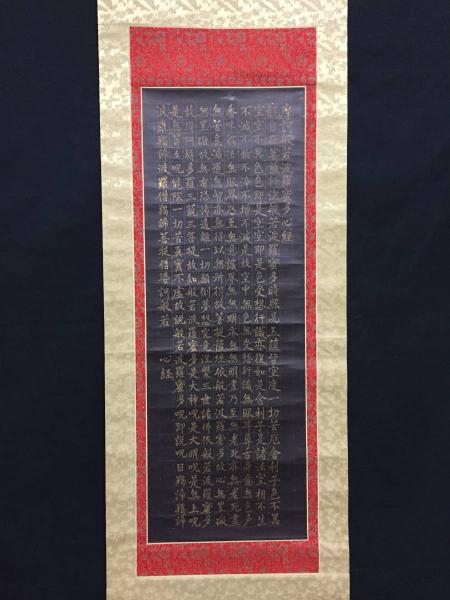 摩訶般若波羅蜜多心経
觀自在菩薩行深般若波羅蜜多時照見五蘊皆空度一切苦厄舍利子色不異
空空不異色色即是空空即是色受想行識亦復如是舍利子是諸法空相不生
不滅不垢不浄不增不減是故空中無色無受想行識無眼耳鼻舌身意無色声
香味觸法無眼界乃至無意識界無無明亦無無明盡乃至無老死亦無老死盡
無苦集滅道無智亦無得以無所得故菩提薩埵依般若波羅蜜多故心無罣礙
無罣礙故無有恐怖遠離一切顛倒夢想究竟涅槃三世諸佛依般若波羅蜜多
故得阿耨多羅三藐三菩提故知般若波羅蜜多是大神呪是大明呪是無上呪
是無等々呪能除一切苦真實不虚故説般若波羅蜜多呪即説呪曰羯諦羯諦
波羅羯諦波羅僧羯諦菩提僧婆訶般若 心経